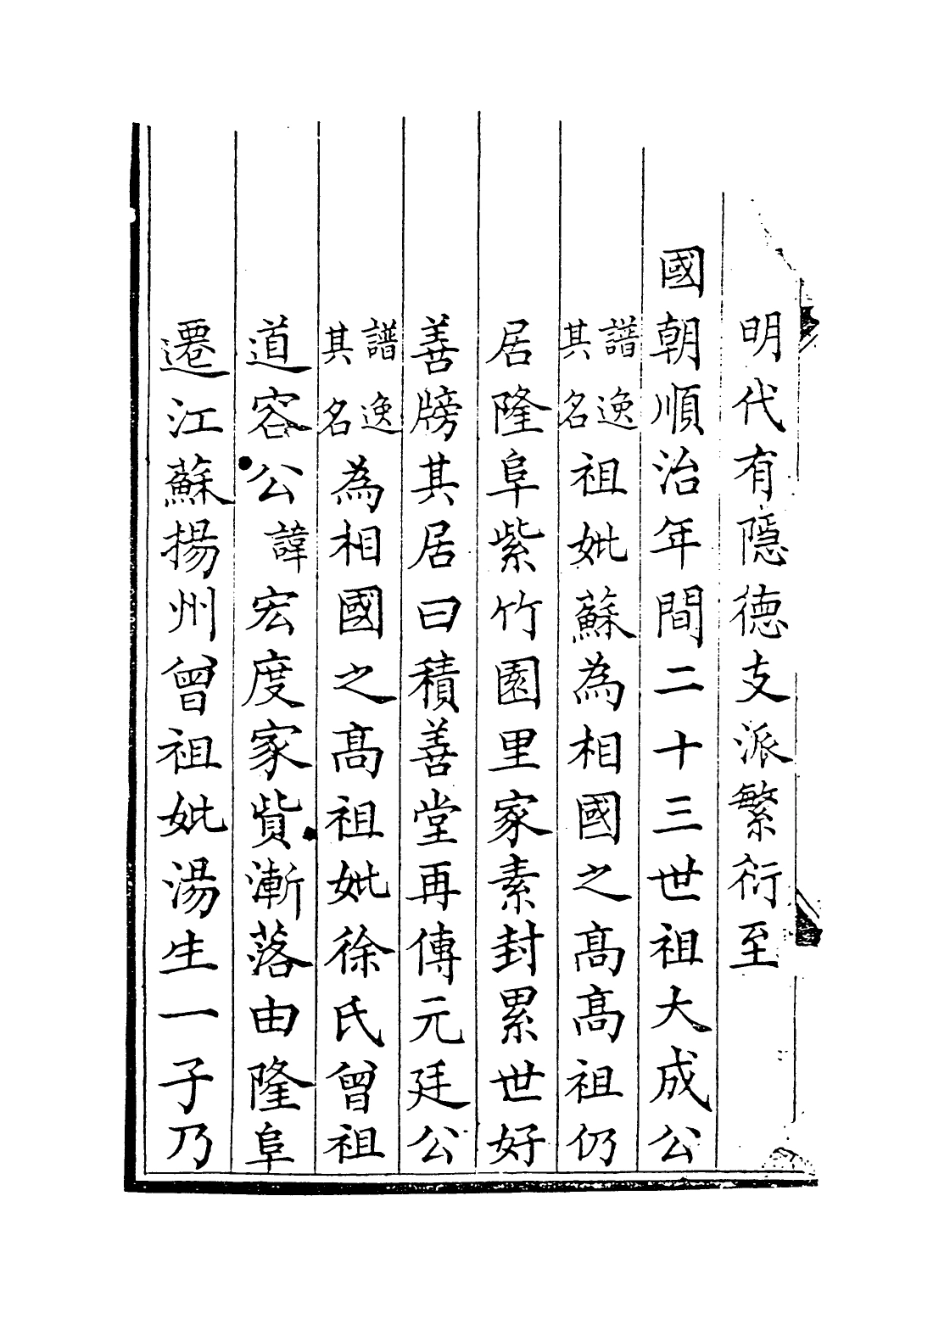 明代有隱德支派繁衍至
國朝順治年間二十三世祖大成公
譜逸其名祖妣蘇為相國之高高祖仍
居隆阜紫竹園里家素封累世好
善牓其居曰積善堂再傳元廷公
譜逸其名為相國之高祖妣徐氏曾祖
道容公諱宏度家貲漸落由隆阜
遷江蘇揚州曾祖妣湯生一子乃